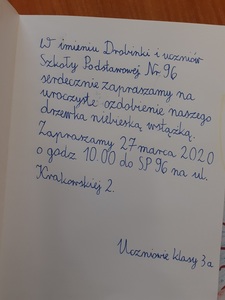 W imieniu Drobinki i uczniów
Szkoły Podstawowej Nr 96
serdecznie zapraszamy na
uroczyste ozdobienie naszego
drzewka niebieską wstążką.
Zapraszamy 27 marca 2020
o godz 10.00 do SP 96 na ul.
Krakowskiej 2.
Uczniowie klasy 3a